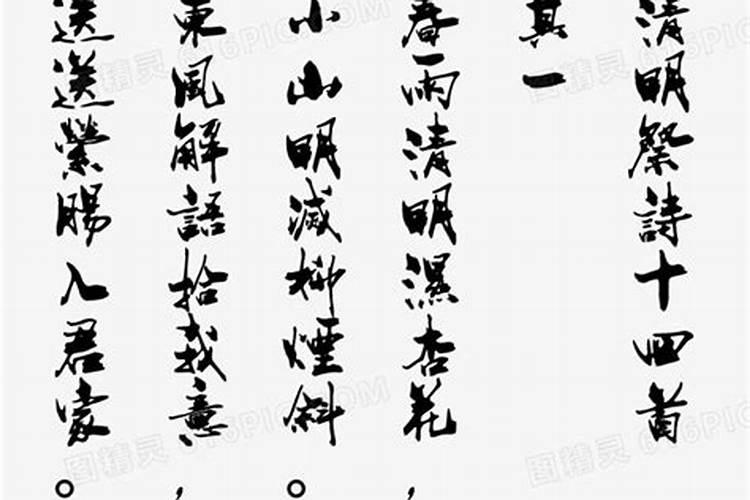 清明祭詩十四首
其一
春雨清明濕杏花，
小山明滅柳煙斜。
東風解語拾我意，
送送縈腸入君家。
图精灵 616PIC.COM